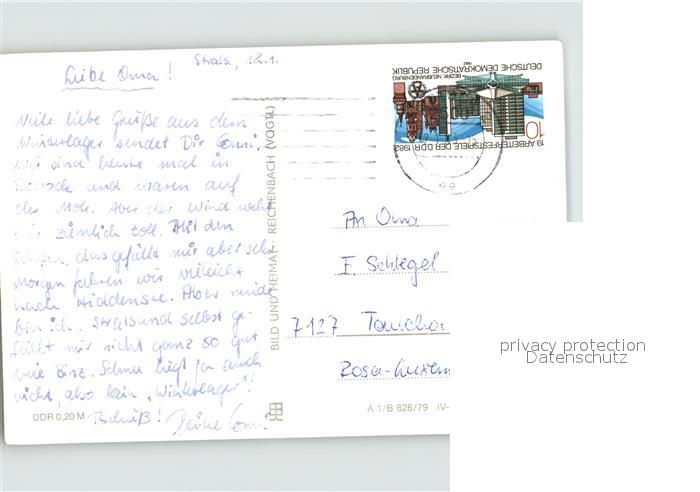 Strals, 12.1.
Liebe Oma!
Viele liebe Grüße aus dem
Winterlager sendet Dir Conni.
Wir sind heute mal in
und waren auf
der Mole. Aber der Wind weht
hier ziemlich toll. Mit den
das gefällt mir aber sehr
Morgen fahren wir vielleicht
nach Hiddensee. Aber müde
bin ich. Stralsund selbst ge-
fällt mir nicht ganz so gut
wie Binz. Schnee liegt ja auch
nicht, also kein "Winterlager"!
Tschüß! Deine Conni
DDR 0,20 M
BILD UND HEIMAT REICHENBACH (VOGTL)
19. ARBEITERFESTSPIELE DER DDR 1982
10
BEZIRK NEUBRANDENBURG
1982
DEUTSCHE DEMOKRATISCHE REPUBLIK
An Oma
E. Schlegel
7127 Taucha
Rosa-Luxem
A 1/B 826/79 IV-
privacy protection
Datenschutz